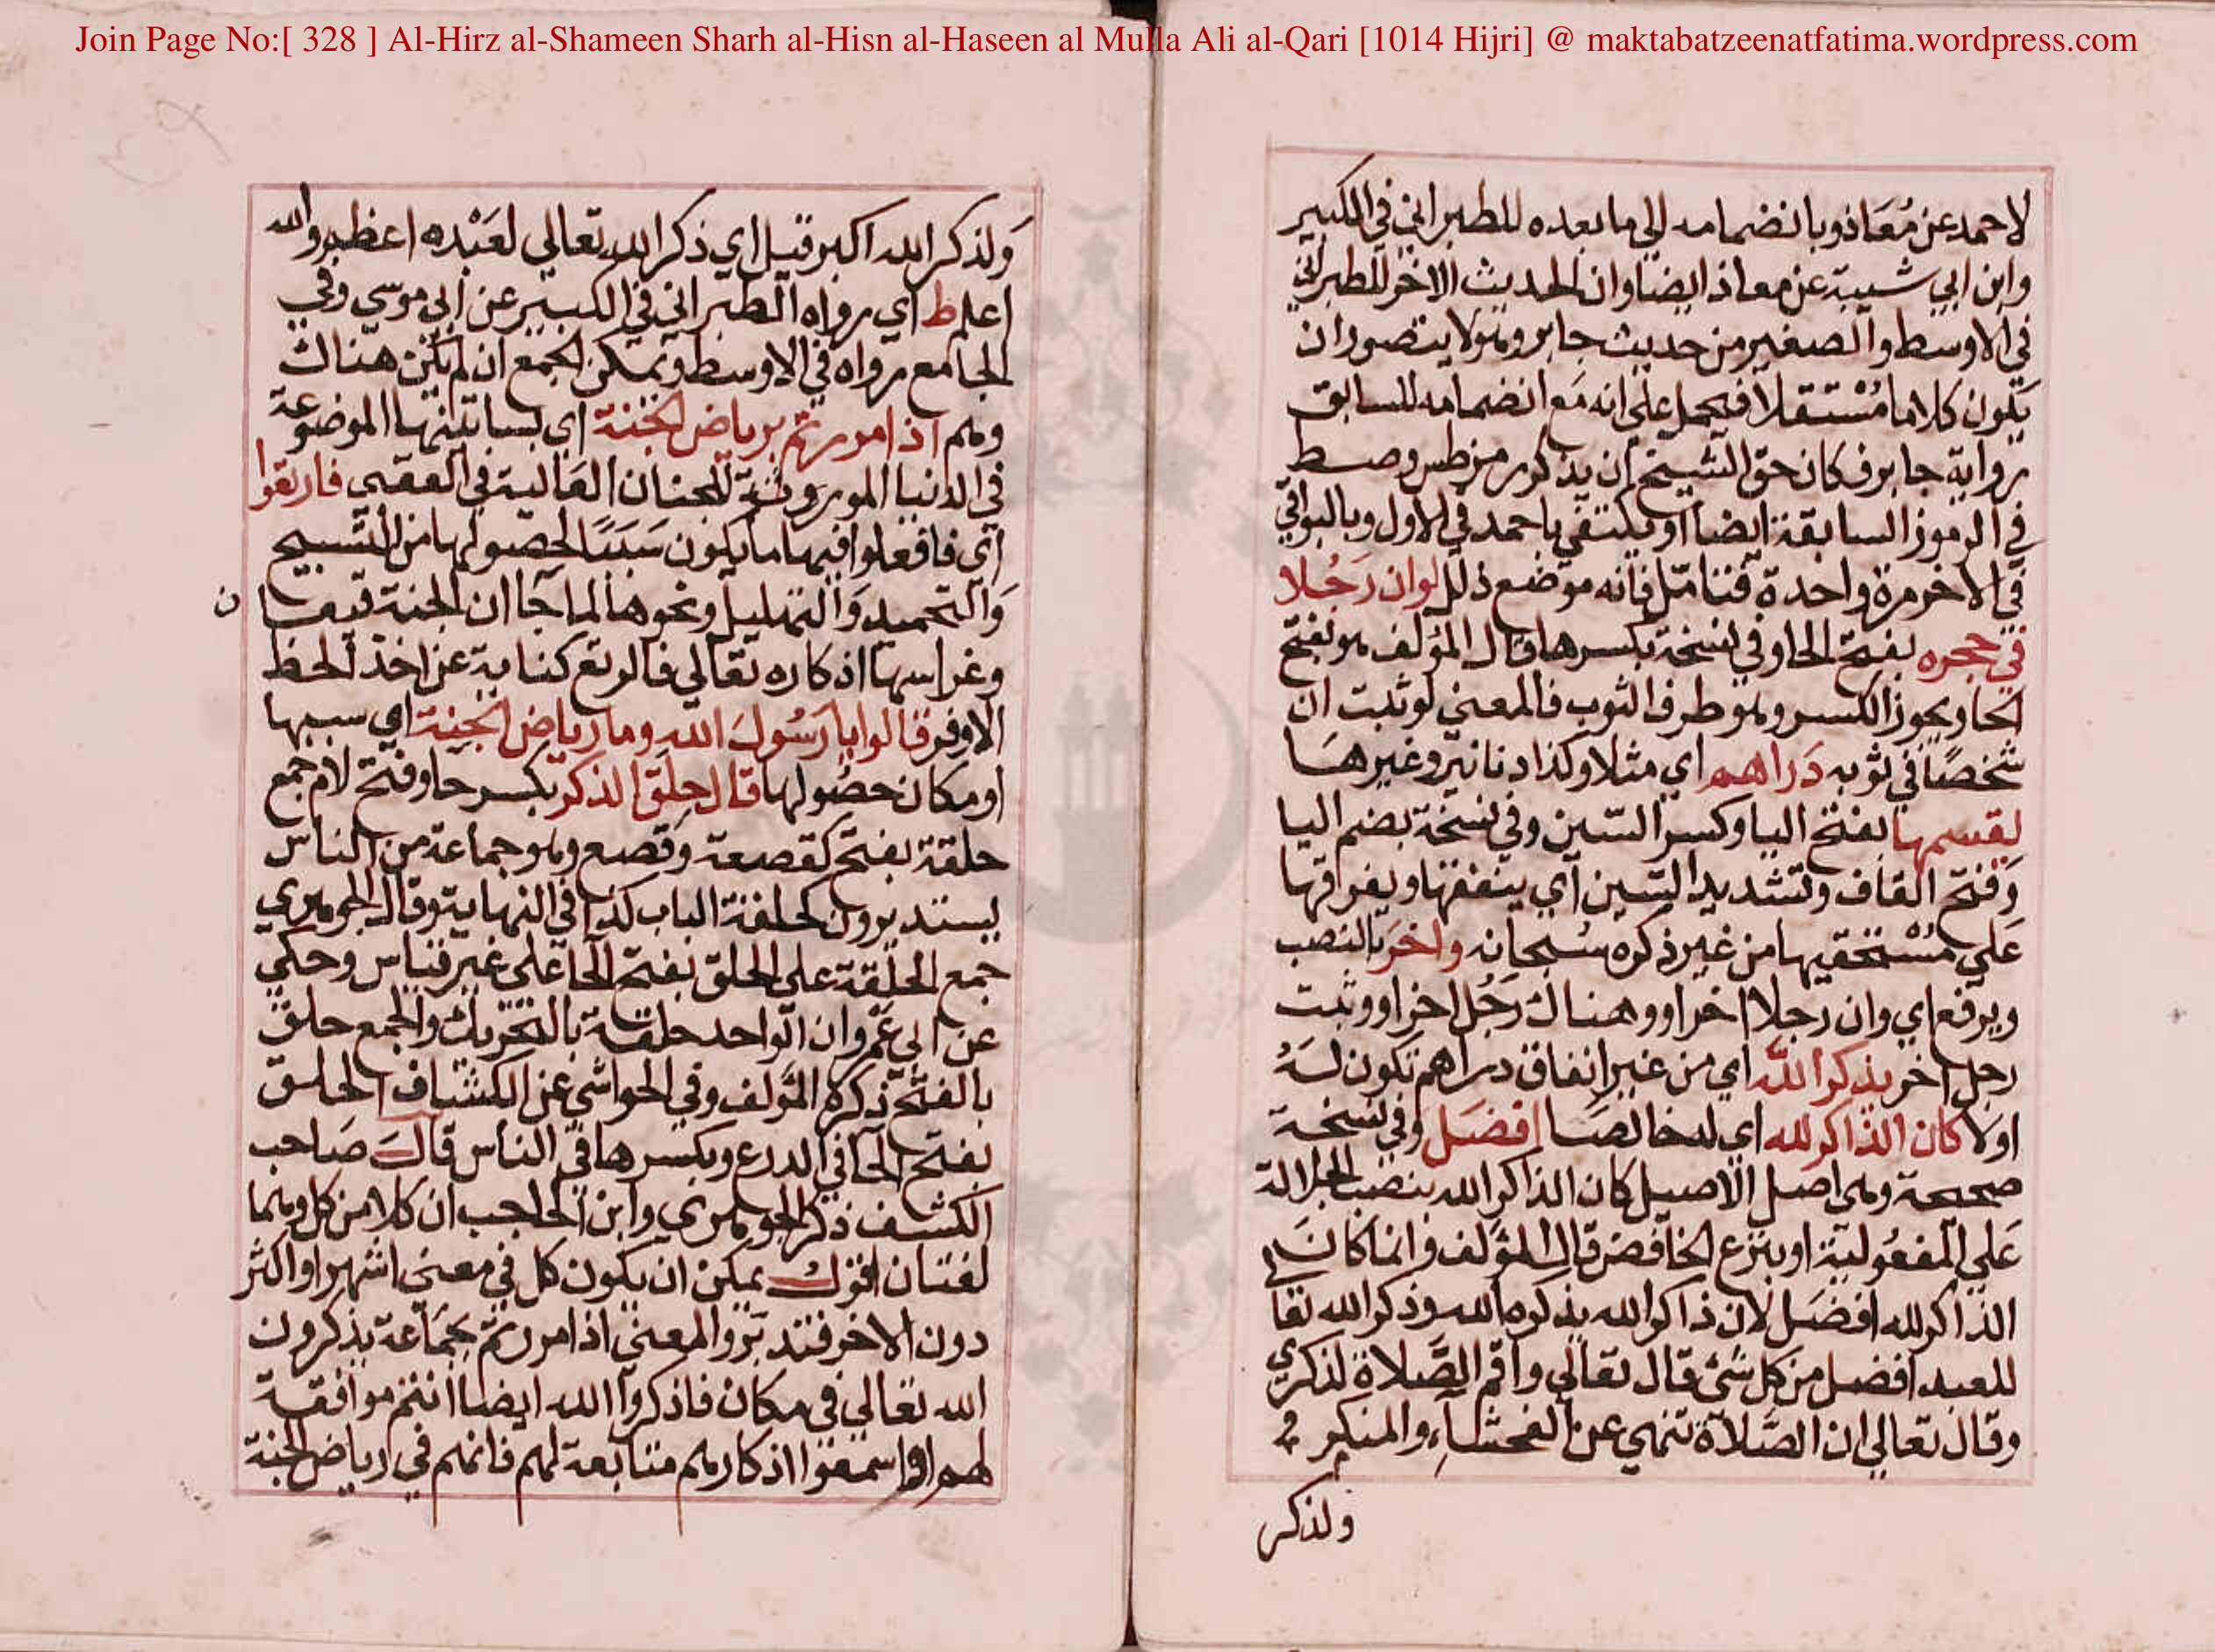 Join Page No:[ 328 ] Al-Hirz al-Shameen Sharh al-Hisn al-Haseen al Mulla Ali al-Qari [1014 Hijri] @ maktabatzeenatfatima.wordpress.com
لاحمد عن مُعَاذ وبانضمامه الي ما بعده للطبراني في الكبير
وابن ابي شيبة عن معاذ ايضا وان الحديث الاخر للطبراني
في الاوسط والصغير من حديث جابر وهو لا يتصور ان
يكون كلاما مُسْتقلا فيحمل علي انه مَع انضمامه للسابق
رواية جابر فكان حق الشيخ ان يذكر رمز طس وصط
في الرموز السابقة ايضا او يكتفي باحمد في الاول وبالبواقي
في الاخر مرة واحدة فتامّل فانه موضع زلل لوان رَجُلا
في حجره بفتح الحا وفي نسخة بكسرها قال المؤلف هو بفتح
الحا ويجوز الكسر وهو طرف الثوب فالمعني لو ثبت ان
شخصًا في ثوبه دَراهم اي مثلا وكذا دنانير وغيرهَا
يقسمها بفتح اليا وكسر السّين وفي نسخة بضم اليا
وَفتح القاف وتشديد السّين اي ينفقها ويفرقها
عَلي مُسْتحقيها من غير ذكره سُبحانه واخرَ بالنصب
ويرفع اي وان رجلا اخر او وهناك رَجُل اخر او وثبت
رجل اخر يذكر اللّه اي من غير انفاق دراهم تكون لَهُ
اولا كان الذاكر لله اي له خالصَا افضَل وفي نسخة
صحيحة وهي اصل الاصيل كان الذاكر الله بنصب الجلالة
عَلي المفعُولية او بنزع الخافض قال المؤلف وانما كانَ
الذاكر لله افضَل لان ذاكر الله يذكره الله وذكر الله تعا
للعبد افضل من كل شئ قال تعالي واقم الصَّلاة لذكري
وقال تعالي ان الصَّلاة تنهي عن الفحشآء والمنكر
ولذكر
وَلذكر الله اكبر قيل اي ذكر الله تعالي لعَبْده اعظم والله
اعلم ط اي رواه الطبراني في الكبير عن ابي موسي وفي
الجامع رواه في الاوسط ويمكن الجمع ان لم يكن هناك
وهم اذا مررتم برياض الجنة اي بساتينها الموضوعة
في الدنيا الموروثة للجنان العَالية في العقبي فارتعوا
اي فافعلوا فيها ما يكون سَبَبًا لحصولها من التسبيح
وَالتحميد وَالتهليل ونحوها لما جا ان الجنة قيعا
ن
وغراسها اذكاره تعالي فالرتع كناية عن اخذ الحظ
الاوفر قالوا يا رَسُولَ الله وما رياض الجنة اي سببها
او مكان حصُولها قال حِلَق الذكر بكسر حا وفتح لام جمع
حلقة بفتح كقصعة وَقصع وهو جماعة من الناس
يستديرون كحلقة الباب كذا في النهاية وقال الجوهري
جمع الحلقة علي الحلق بفتح الحا علي غير قياس وحكي
عن ابي عَمْروان الواحد حلقة بالتحريك والجمع حلق
بالفتح ذكره المؤلف وفي الحواشي عن الكشاف الحلق
بفتح الحا في الدرع وبكسرها في الناس قالَ صَاحب
الكشف ذكر الجوهري وابن الحاجب ان كلا من كل ومنها
لغتان اقول يمكن ان يكون كل في معني اشهر او اكثر
دون الاخر فتدبّر والمعني اذا مررتم بجَمَاعة يذكرون
الله تعالي في مكان فاذكروا الله ايضا انتم موافقة
لهم او اسمعوا اذكارهم متابعة لهم فانهم في رياض الجنة